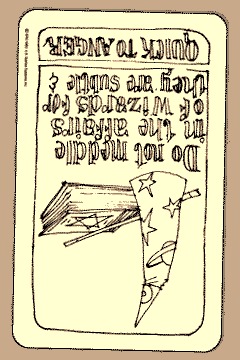 Do not meddle
in the affairs
of wizards for
they are subtle &
QUICK TO ANGER